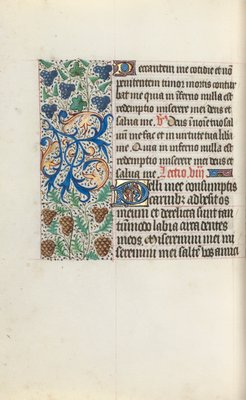 Peccantem me cotidie et no
penitentem timor mortis contur
bat me quia in iferno nulla est
redemptio miserere mei deus et
salua me. V. Deus i noie tuo sal
uu me fac et in uirtute tua libe
me. Quia in inferno nulla est
redemptio miserere mei deus et
salua me. Lectio. viij
Pelli mee consumptis
carnibz adhesit os
meum et derelicta sunt tan
tumodo labia circa dentes
meos. Miseremini mei mi
seremini mei saltem vos amici